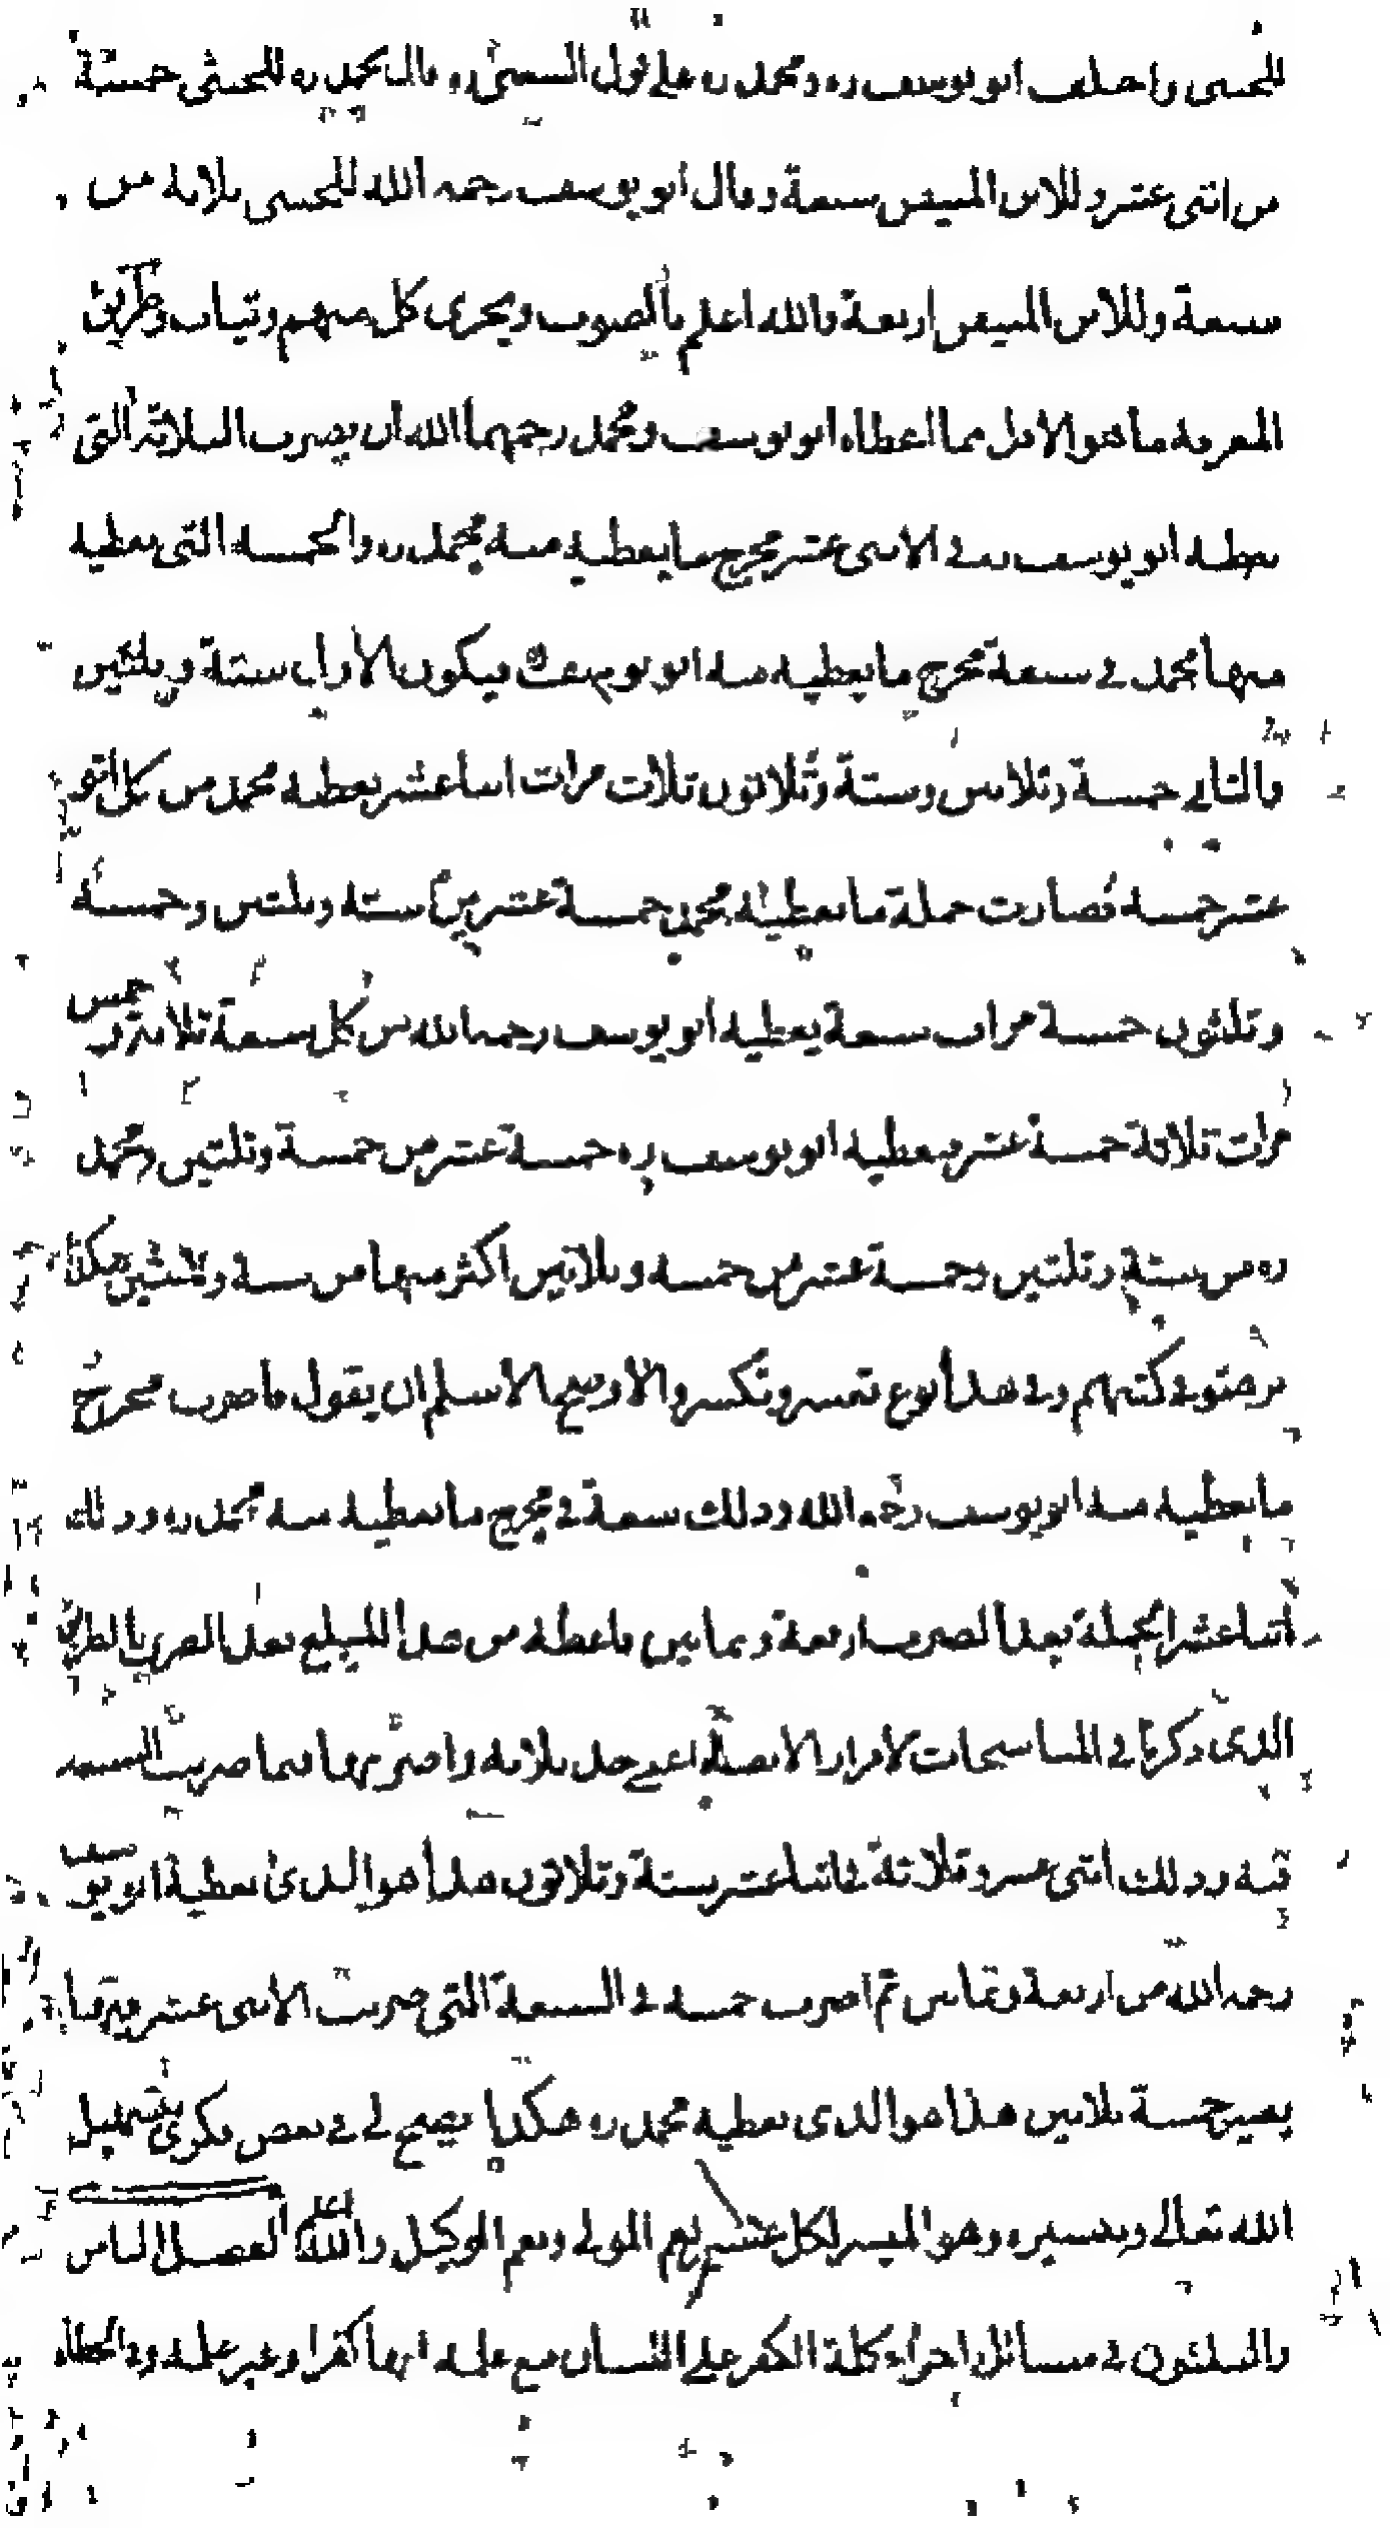 للخنثى واختلف ابو يوسف ره ومحمد ره على قول الشعبى ره قال محمد ره للخنثى خمسة
من اثنى عشر وللابن المتيقن سبعة وقال ابو يوسف رحمه الله للخنثى ثلاثة من
سبعة وللابن المتيقن اربعة والله اعلم بالصوب ويجرى كل منهم وثياب وطريق
المعرفة ما هو الاقل مما اعطاه ابو يوسف ومحمد رحمهما الله ان يضرب الثلاثة التى
يعطيه ابو يوسف ره فى الاثنى عشر مخرج ما يعطيه منه محمد ره والخمسة التى يعطيه
منها محمد فى سبعة مخرج ما يعطيه منه ابو يوسف فيكون الاول ستة وثلثين
والثانى خمسة وثلاثين وستة وثلاثون ثلاث مرات اثنا عشر يعطيه محمد من كل اثنى
عشر خمسة فصارت جملة ما يعطيه محمد خمسة عشر من ستة وثلثين وخمسة
وثلثون خمسة مرات سبعة يعطيه ابو يوسف رحمه الله من كل سبعة ثلاثة وخمس
مرات ثلاثة خمسة عشر فيعطيه ابو يوسف ره خمسة عشر من خمسة وثلثين ومحمد
ره من ستة وثلثين وخمسة عشر من خمسة وثلاثين اكثر منها من ستة وثلثين هكذا
فى كتبهم وفى هذا نوع تعسر وتكسر والاوضح الاسلم ان يقول فاضرب مخرج
ما يعطيه منه ابو يوسف رحمه الله وذلك سبعة فى مخرج ما يعطيه منه محمد ره وذلك
اثنا عشر الجملة بعد الضرب اربعة وثمانين فاعطه من هذا المبلغ بعد الضرب بالطريق
الذى ذكرنا فى المناسخات لافراز الانصباء اعنى خذ ثلاثة واضربها فيما ضربت السبعة
فيه وذلك اثنى عشر وثلاثة فى اثنا عشر ستة وثلاثون هذا هو الذى يعطيه ابو يوسف
رحمه الله من اربعة وثمانين ثم اضرب خمسة فى السبعة التى ضربت الاثنى عشر فيها
يصير خمسة ثلاثين هذا هو الذى يعطيه محمد ره هكذا يصح لى فى بعض فكرى بتسهيل
الله تعالى وتيسيره وهو الميسر لكل عسير نعم المولى ونعم الوكيل والله اعلم الفصل الثامن
والثلثون فى مسائل اجراء كلمة الكفر على اللسان مع علمه انها كفر او غير علمه وفى الخطاء